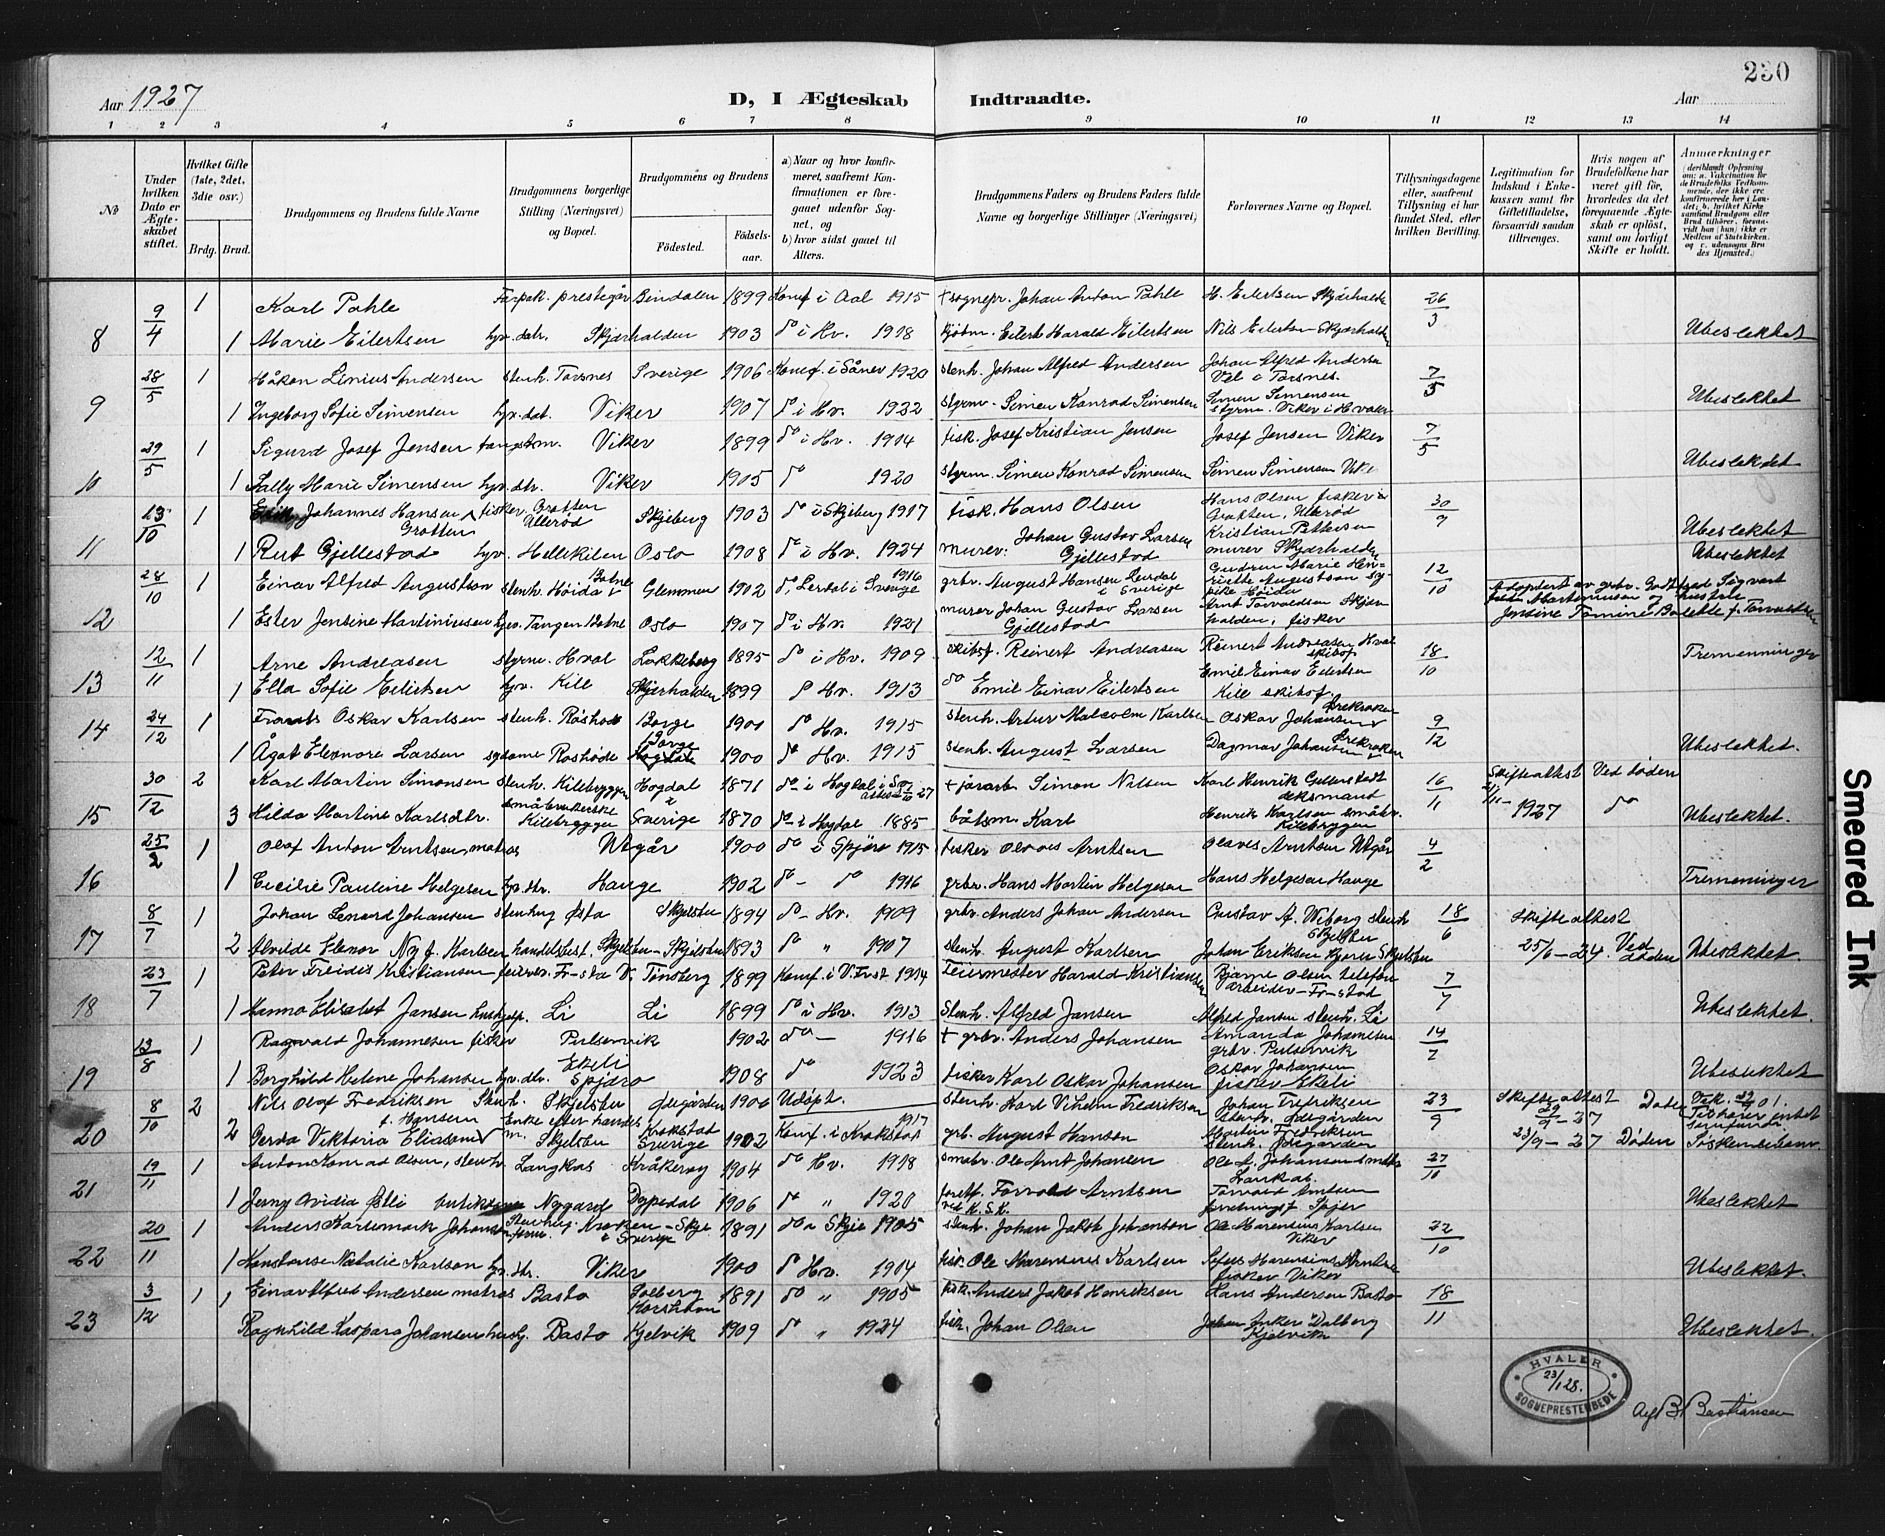 230
Aar 1927
D, I Ægteskab Indtraadte.
Aar
1 2 3 4 5 6 7 8 9 10 11 12 13 14
No
Under hvilken Dato er Ægteskabet stiftet.
Hvilket Gifte (1ste, 2det, 3die osv.)
Brdg. Brud.
Brudgommens og Brudens fulde Navne
Brudgommens borgerlige Stilling (Næringsvei) og Bopæl.
Brudgommens og Brudens
Fødested.
Fødselsaar.
a) Naar og hvor konfirmeret, saafremt Konfirmationen er foregaaet udenfor Sognet, og
b) hvor sidst gaaet til Alters.
Brudgommens Faders og Brudens Faders fulde Navne og borgerlige Stillinger (Næringsvei)
Forlovernes Navne og Bopæl.
Tillysningsdagene eller, saafremt Tillysning ei har fundet Sted, efter hvilken Bevilling.
Legitimation for Indskud i Enkekassen samt for Giftetilladelse, forsaavidt saadan tiltrænges.
Hvis nogen af Brudefolkene har været gift før, hvorledes da det foregaaende Ægteskab er opløst, samt om lovligt Skifte er holdt.
Anmærkninger
8 9/4 1 Karl Pahle Forpak. prestegår Bindalen 1899 Konf i Aal 1915 + sognepr. Johan Anton Pahle H. Eilertsen Skjærhalde 26/3
1 Marie Eilertsen hjv. dtr. Skjærhalden 1903 do i Hv. 1918 kjøbm. Eilert Harald Eilertsen Nils Eilertsen Skjærhalden Ubeslektet
9 28/5 1 Håkon Linius Andersen stenh. Torsnes Sverige 1906 Konf. i Såner 1920 stenh. Johan Alfred Andersen Johan Alfred Andersen Vel i Torsnes. 7/5
1 Ingeborg Sofie Simensen hjv. dat. Viker 1907 do i Hv. 1922 styrm. Simen Konrad Simensen Simen Simensen styrm. Viker i Hvaler Ubeslektet
10 29/5 1 Sigurd Josef Jensen Viker 1899 do i Hv. 1914 fisk. Josef Kristian Jensen Josef Jensen Viker 7/5
1 Sally Marie Simensen hjv. dtr. Viker 1905 do 1920 styrm. Simen Konrad Simensen Simen Simensen Ubeslektet
11 23/10 1 Johannes Hansen Grotten fisker Grotten Ullerød Skjeberg 1903 do i Skjeberg 1917 fisk. Hans Olsen Hans Olsen fisker Grotten, Ullerød 30/9 Ubeslektet
1 Rut Gjellestad hjv. Hellekilen Oslo 1908 do i Hv. 1924 murer. Johan Gustav Larsen Gjellestad Kristian Pettersen murer Skjærhalden Ubeslektet
12 28/10 1 Einar Alfred Augustson stenh. Høida Botne Glemmen 1902 do, Lerdal i Sverige 1916 grbr. August Hansen Lerdal i Sverige Gudrun Marie Henriette Augustson Høida 12/10 Adoptert av grbr. Gotfred Sigvart Martiniusen og hustru
1 Ester Jensine Martiniusen hjv. Tangen Botne Oslo 1907 do i Hv. 1921 murer Johan Gustav Larsen Gjellestad Arnt Torvaldsen Skjærhalden, fisker Jensine Tomine Bolette f. Torvaldsen
13 12/11 1 Arne Andreasen styrm. Hval Lokkeberg 1895 do i Hv. 1909 skibsf. Reinert Andreasen Reinert Andreasen Hval skibsf 18/10 Tremenninger
1 Ella Sofie Eilertsen hjv. Kile Skjærhalden 1899 do Hv. 1913 do Emil Einar Eilertsen Emil Einar Eilertsen Kile skibsf
14 24/12 1 Frants Oskar Karlsen stenh. Røshode Borge 1901 do Hv. 1915 stenh. Artur Malcolm Karlsen Oskar Johansen Ørekroken 9/12
1 Ågot Eleonore Larsen sydame Røshode Borge 1900 do Hv. 1915 stenh. August Larsen Dagmar Johansen Ørekroken Ubeslektet.
15 30/12 2 Karl Martin Simonsen stenh. Kilebryggen Hogdal i 1871 do i Hogdal i Sv. + jorarb. Simon Nilsen Karl Henrik Gellerstadt deksmand 16/11 Skifteattest Ved døden
3 Hilda Martine Karlsdtr. småbrukerske Kilebryggen Sverige 1870 do i Hogdal 1885 båtsm. Karl Henrik Karlsen småbr. Kilebrygen 1927 do Ubeslektet.
16 25/2 1 Olaf Anton Arntsen, matros Utgår 1900 do i Spjær 1915 fisker Olaves Arntsen Olaves Arntsen Utgår 4/2
1 Cecilie Pauline Helgesen hjv. dtr. Hauge 1902 do - do 1916 grbr. Hans Martin Helgesen Hans Helgesen Hauge Tremeninger
17 8/7 1 Johan Lenard Johansen stenhug Østa Skjelsbu 1894 do - Hv. 1909 grbr. Anders Johan Andersen Gustav A. Wiborg stenh Skjelsbu 18/6 Skifteattest
2 Alvilde Elenor Ny f. Karlsen handelsbest. Skjelsbu - Skjelsbu 1893 do " 1907 stenh. August Karlsen Johan Eriksen Kjoren Skjelsbu 25/6 - 24. Ved døden Ubeslektet.
18 23/7 1 Peter Freidis Kristiansen feiersv. Fr-sta V. Tindberg 1899 Konf. i V. Frst. 1914 Feiermester Harald Kristiansen Bjarne Olsen telefonarbeider - Fr-stad 7/7
1 Hanna Elisabet Jansen Li Li 1899 do i Hv. 1913 Stenh. Alfred Jansen Alfred Jansen stenh. Li Ubeslektet.
19 13/8 1 Ragnvald Johannesen fisker Pulservik 1902 do - 1916 + grbr. Anders Johansen Amanda Johannesen grbr. Pulservik 14/7
1 Borghild Helene Johansen hjv. dtr. Ekeli Spjærø 1908 do 1923 fisker Karl Oskar Johansen Oskar Johansen fisker Ekeli Ubeslektet
20 8/10 2 Nils Olaf Fredriksen Stenh. Skjelsbu Ødegården 1900 Udøpt. stenh. Karl Vilhelm Fredriksen Johan Fredriksen stenh. Ødegården 23/9 Skifteattest 29/9 - 27
2 Gerda Viktoria Eliasen f. Hansen Enke efter handelsm. Skjelsbu Krokstad Sverige 1902 Konf. i Krokstad 1917 grb. August Hanson Martin Fredriksen stenh. Ødegården 23/9 - 27 Døden Søskenebarn
21 19/11 1 Anton Konrad Olsen, stenh. Langkas Kråkerøy 1904 do Hv. 1918 småbr. Ole Arnt Johansen Ole A. Johansen småbr. Lankas. 27/10
1 Jenny Ovidia butikkdame Nygård Dypedal 1906 do " 1920 Torvald Arntsen Torvald Arntsen Ubeslektet
22 20/11 1 Anders Hartemark Johansen Stenhug. Kroken - Skje i Sverige 1891 do i Skje 1905 stenh. Johan Jakob Johanson Ole Marensius Karlsen Viker 22/10
1 Konstanse Natalie Karlson hjv. dtr. Viker 1900 do Hv. 1914 fisk. Ole Marensius Karlsen fisker Viker Ubeslektet.
23 3/12 1 1 Einar Alfred Andersen matros Basto 1891 do " 1905 fisk. Anders Jakob Henriksen Hans Andersen Basto 18/11
Ragnhild Kaspara Johansen hush. Basto Kjelvik 1909 do " 1924 fisk. Johan Olsen Johan Anker Dalberg Kjelvik Ubeslektet.
HVALER SOGNEPRESTEMBEDE
23/1 28.
Avgl. B. Bastiansen
Smeared Ink